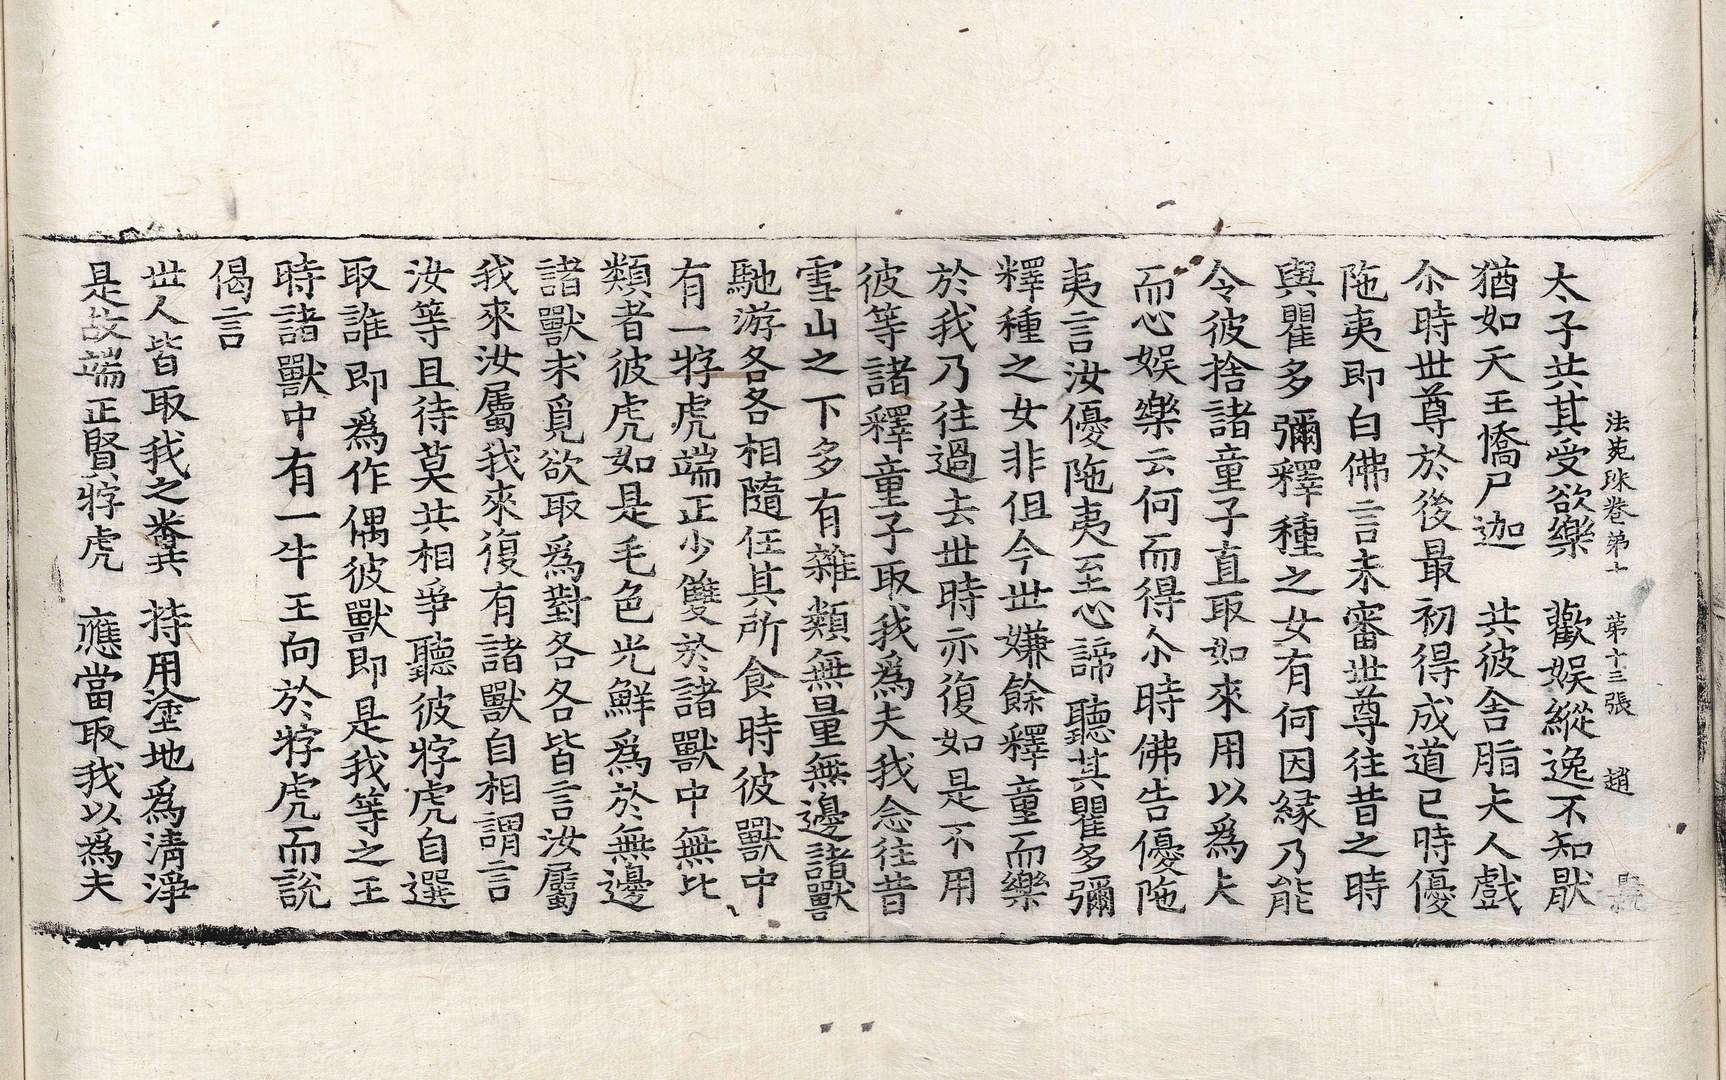 法苑珠卷第十 第十三張 趙
太子共其受欲樂 歡娛縱逸不知猒
猶如天王憍尸迦 共彼舍脂夫人戲
尒時世尊於後最初得成道已時優
陁夷即白佛言未審世尊往昔之時
與瞿多彌釋種之女有何因緣乃能
令彼捨諸童子直取如來用以爲夫
而心娛樂云何而得尒時佛告優陁
夷言汝優陁夷至心諦聽其瞿多彌
釋種之女非但今世嫌餘釋童而樂
於我乃往過去世時亦復如是不用
彼等諸釋童子取我爲夫我念往昔
雪山之下多有雜類無量無邊諸獸
馳游各各相隨任其所食時彼獸中
有一牸虎端正少雙於諸獸中無比
類者彼虎如是毛色光鮮爲於無邊
諸獸求覓欲取爲對各各皆言汝屬
我來汝屬我來復有諸獸自相謂言
汝等且待莫共相爭聽彼牸虎自選
取誰即爲作偶彼獸即是我等之王
時諸獸中有一牛王向於牸虎而說
偈言
世人皆取我之糞 持用塗地爲清淨
是故端正賢牸虎 應當取我以爲夫